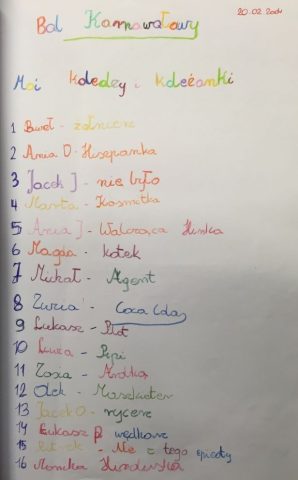 20.02.2001
Bal Karnawałowy
Moi koledzy i koleżanki
1 Paweł - żołnierz
2 Ania D - Hiszpanka
3 Jacek J - nie było
4 Marta - Kosmetka
5 Ania J - Walcząca
6 Magda - kotek
7 Michał - Agent
8 Zuzia - Coca Cola
9 Łukasz -
10 Luiza - Pipi
11 Zosia -
12 Olek - Muszkieter
13 Jacek O - rycerz
14 Łukasz B wędkarz
15 - Nie z tego
16 Monika Hinduska